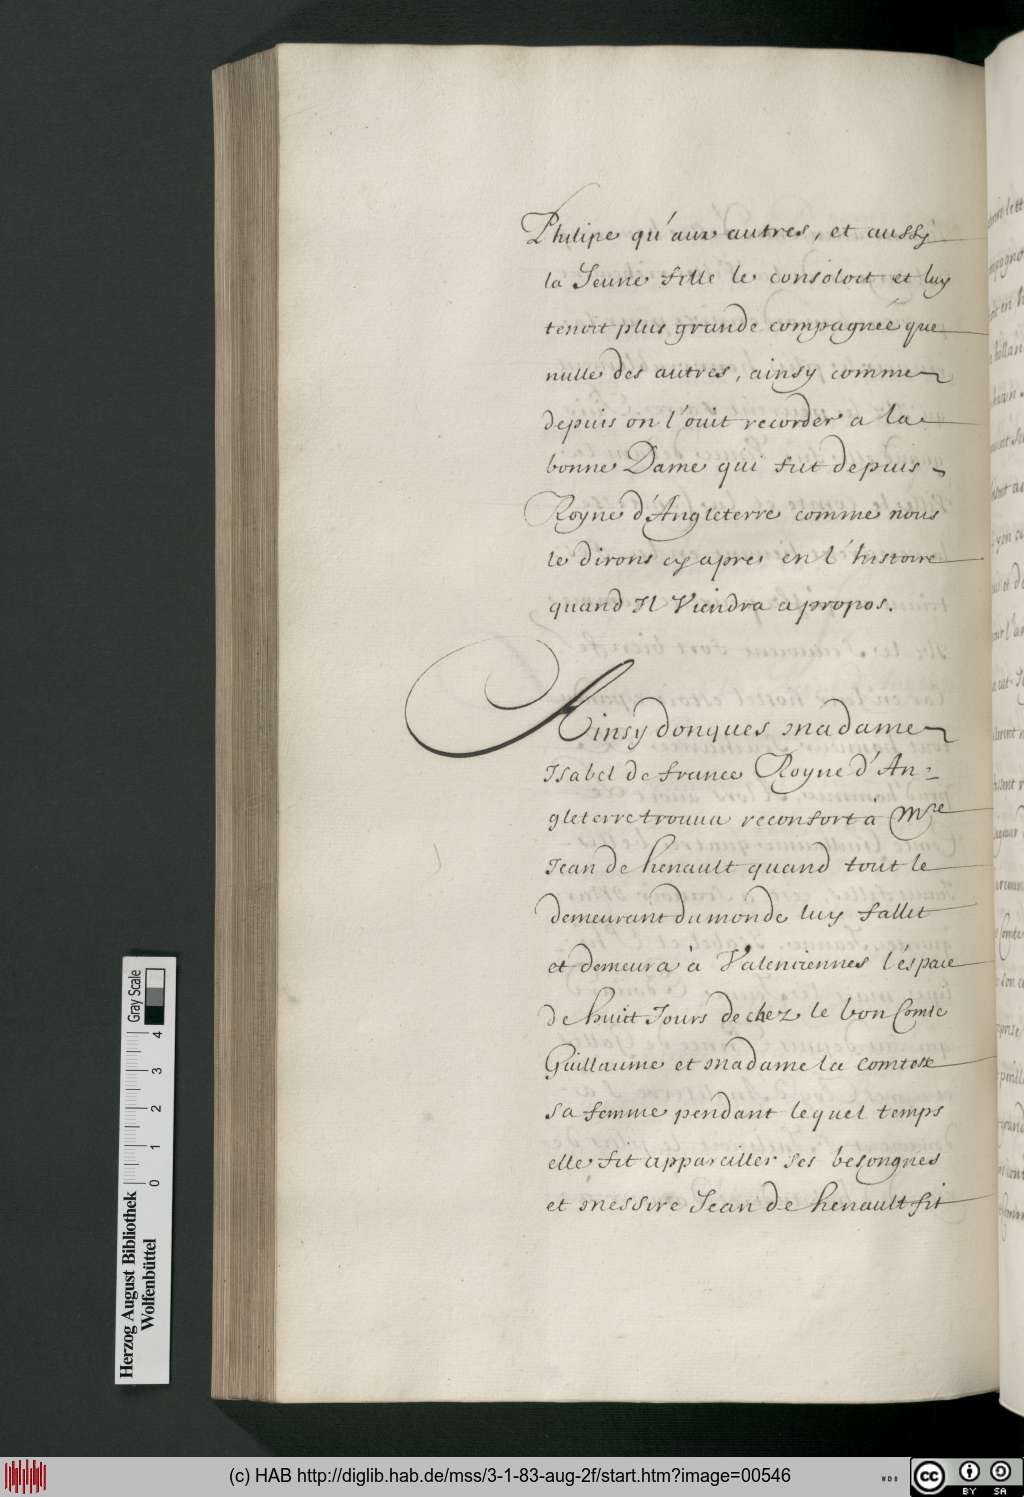 Philipe qu'aux autres, et aussy
la Jeune fille le consoloit et luy
tenoit plus grande compagnée que
nulle des autres, ainsy comme
depuis on l'ouit recorder a la
bonne Dame qui fut depuis
Royne d'Angleterre comme nous
le dirons cy apres en l'histoire
quand Il Viendra a propos.
Ainsy donques madame
Isabel de france Royne d'An-
gleterre trouua reconfort à Mre
Jean de henault quand tout le
demeurant du monde luy fallit
et demeura à Valenciennes l'éspace
de huict Jours de chez le bon Comte
Guillaume et madame la comtesse
sa femme pendant lequel temps
elle fit appareiller ses besongnes
et messire Jean de henault fit
Gray Scale
0 1 2 3 4
Herzog August Bibliothek
Wolfenbüttel
(c) HAB http://diglib.hab.de/mss/3-1-83-aug-2f/start.htm?image=00546
WDB
cc BY SA